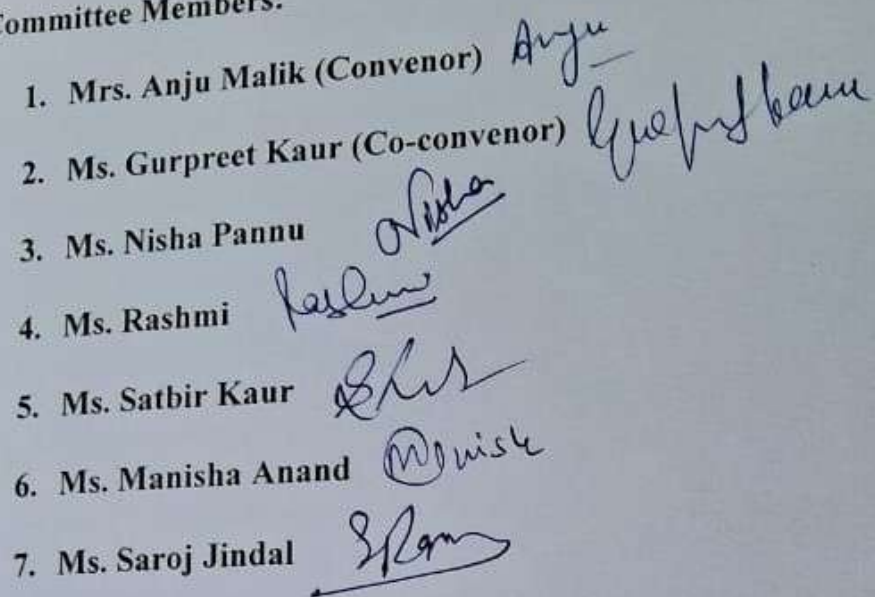 Committee Members:
1. Mrs. Anju Malik (Convenor) Anju
2. Ms. Gurpreet Kaur (Co-convenor) Gurpreet Kaur
3. Ms. Nisha Pannu Nisha
4. Ms. Rashmi Rashmi
5. Ms. Satbir Kaur
6. Ms. Manisha Anand
7. Ms. Saroj Jindal